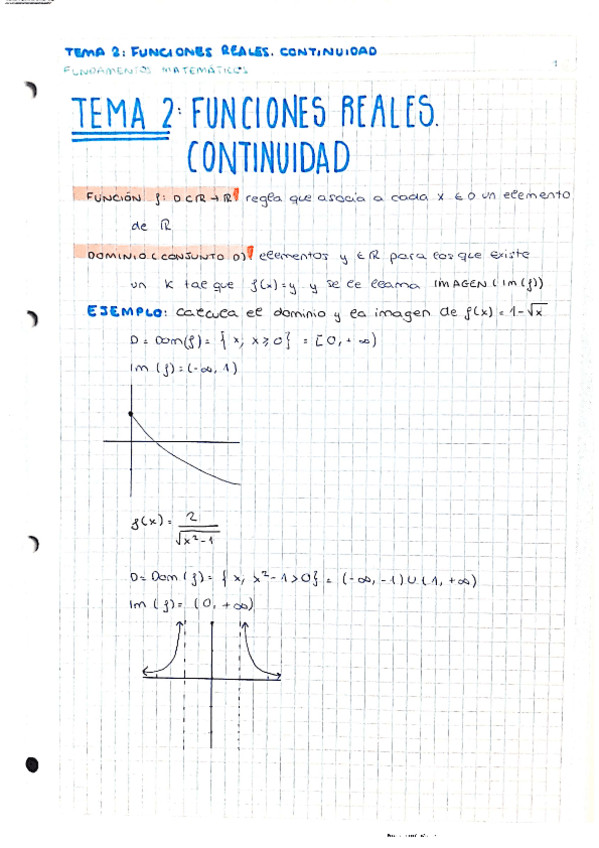 TEMA 2: FUNCIONES REALES. CONTINUIDAD
FUNDAMENTOS MATEMÁTICOS
1
TEMA 2: FUNCIONES REALES.
CONTINUIDAD
FUNCIÓN f: D⊂ℝ→ℝ regla que asocia a cada x ∈ D un elemento
de ℝ
DOMINIO (CONJUNTO D) elementos y ∈ ℝ para los que existe
un x tal que f(x)=y y se le llama IMAGEN (Im(f))
EJEMPLO: calcula el dominio y la imagen de f(x)=1-√x
D = Dom(f) = { x, x ≥ 0 } = [0, +∞)
Im (f) = (-∞, 1)
f(x) = 2/√(x²-1)
D = Dom (f) = { x, x²-1>0} = (-∞, -1) ∪ (1, +∞)
Im (f) = (0, +∞)